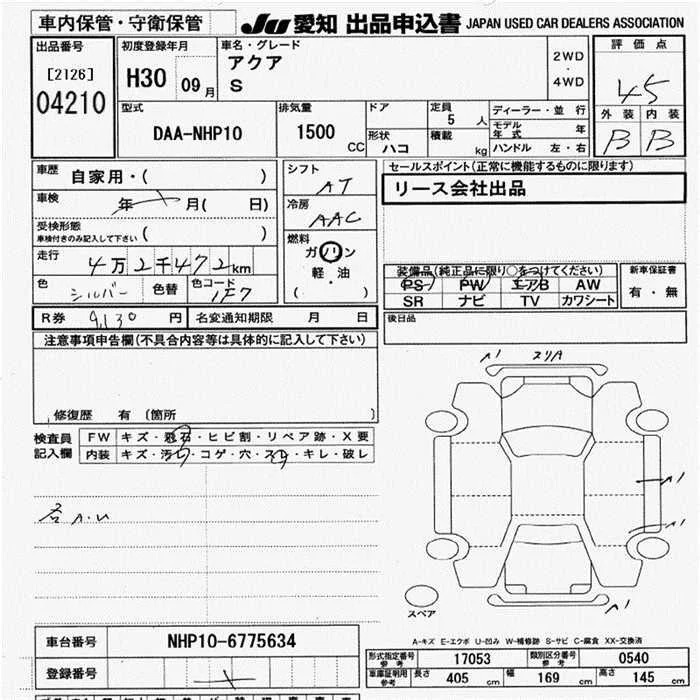 車内保管・守衛保管
JU 愛知 出品申込書 JAPAN USED CAR DEALERS ASSOCIATION
出品番号
[2126]
04210
初度登録年月
H30 09月
車名・グレード
アクア
S
2WD
・
4WD
評価点
4.5
外装 内装
B B
型式
DAA-NHP10
排気量
1500 CC
ドア
形状
ハコ
定員
5 人
積載
kg
ディーラー・並行
モデル年式 年
ハンドル 左・右
車歴
自家用・( )
車検
年 月( 日)
受検形態
車検付きのみ記入して下さい ( )
走行
4万2千472km
色
シルバー 色替
色コード
1F7
シフト
AT
冷房
AAC
燃料
ガソリン
軽・油
( )
セールスポイント(正常に機能するものに限ります)
リース会社出品
装備品(純正品に限り○をつけてください)
PS PW エアB AW
SR ナビ TV カワシート
新車保証書
有・無
R券 9,130 円 名変通知期限 月 日
後日品
注意事項申告欄(不具合内容等は具体的に記入して下さい)
修復歴 有 〔箇所 〕
検査員記入欄
FW キズ・飛石・ヒビ割・リペア跡・X要
内装 キズ・汚れ・コゲ・穴・スレ・キレ・破レ
各 A.U
A1 スリA
A1
A1
A1
スペア
A-キズ E-エクボ U-凹み W-補修跡 S-サビ C-腐食 XX-交換済
車台番号 NHP10-6775634
登録番号
形式指定番号 参考 17053 類別区分番号 参考 0540
車庫証明用 参考 長さ 405 cm 幅 169 cm 高さ 145 cm